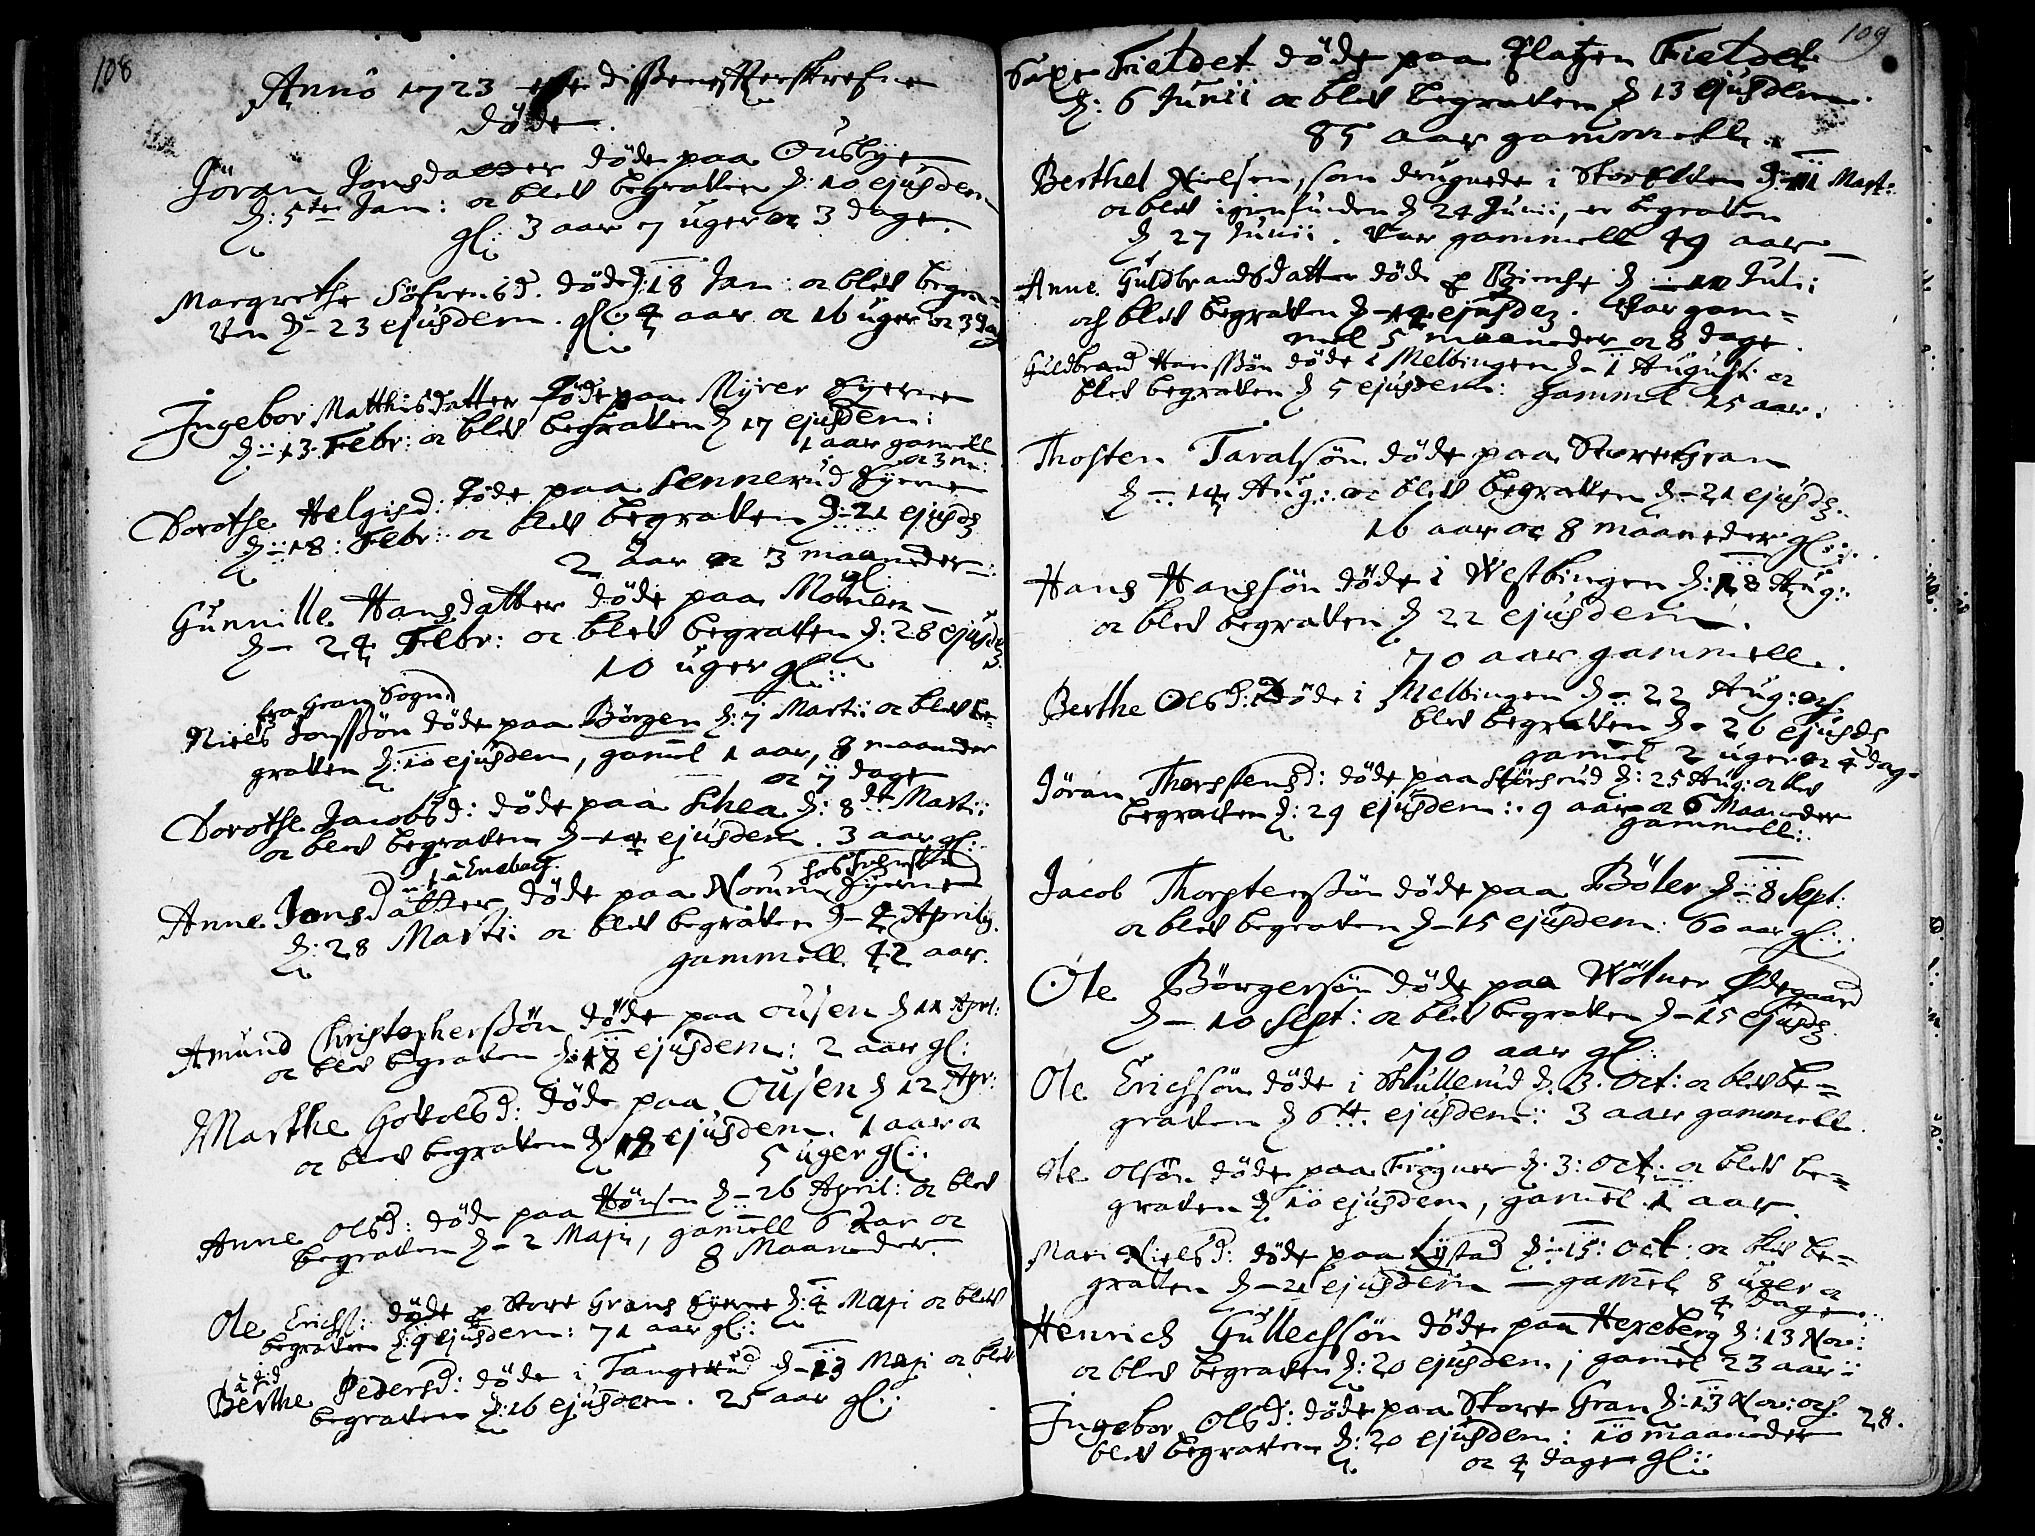 108
Anno 1723 ere disse efterskrefne
døde.
Jöran Jonsdatter døde paa Ousbye
d: 5te Jan: oc blev begraven d: 10 ejusdem
gl: 3 aar 7 uger oc 3 dage.
Margrethe Söfrensd. døde d: 18 Jan: oc blev begra=
ven d- 23 ejusdem. gl: 4 aar oc 16 uger oc 3 dag
Ingebor Matthisdatter døde paa Myrer Eyerne
d: 13 Febr: oc blev begraven d 17 ejusdem:
1 aar gamell
oc 3 m:
Dorothe Helgisd: døde paa Sennerud Eyerne
d: 18: Febr: oc blev begraven d- 21 ejusd
2 aar oc 3 maaneder
gl:
Gunnille Hansdatter døde paa Monen
d- 24 Febr: oc blev begraven d: 28 ejusd
10 uger gl::
fra Gran Sogn
Niels Jonssön døde paa Börgen d: 7 Martii oc blev be=
graven d: 10 ejusdem, gamel 1 aar, 8 maaneder
oc 7 dage
Dorothe Jacobsd: døde paa Schea d: 8de Marti:
oc blev begraven d- 14 ejusdem. 3 aar gl:
Enebach
Anne Jonsdatter døde paa Norum Eyerne
d: 28 Marti: oc blev begraven d- 4 Aprilis.
gammell 42 aar.
Amund Christopherssön døde paa Ousen d 11 Apri:
oc blev begraven d: 18 ejusdem: 2 aar gl:
Marthe Govolsd: døde paa Ousen d 12 Apr:
oc blev begraven d 18 ejusdem. 1 aar oc
5 uger gl:
Anne Olsd: døde paa Hönsen d- 26 April: oc blev
begraven d- 2 Maji, gamell 6 aar oc
8 Maaneder.
Ole Erichs: døde p Store Grans Eyerne d: 4 Maji oc blev
begraven d: 9 ejusdem: 71 aar gl:
Berthe Pedersd: døde i Tangerud d- 13 Maji oc blev
begraven d: 16 ejusdem. 25 aar gl:
109
Saxe Fieldet døde paa Platzen Fieldet
d: 6 Junii oc blev begraven d 13 ejusdem.
85 aar gammell.
Berthel Nielsen, som drugnede i StorElven d: 11 Mart:
oc blev igienfunden d 24 Junii, er begraven
d 27 Junii. Var gammell 49 aar
Anne Guldbrandsdatter døde p Bierche d 11 Juli:
och blev begraven d- 14 ejusdem. Var gam=
mel 5 maaneder oc 8 dage.
Guldbrand Hanssøn døde i Melbingen d- 1 Augusti oc
blev begraven d 5 ejusdem: gammel 15 aar.
Thosten Taralsön døde paa Store Gran
d- 14 Aug: oc blev begraven d- 21 ejusd
16 aar oc 8 maaneder gl::
Hans Hanssön døde i Westbingen d: 18 Aug:
oc blev begraven d 22 ejusdem.
70 aar gammell.
Berthe Olsd: Døde i Melbingen d- 22 Aug: och
blev begraven d- 26 ejusd
gamel 2 uger oc 4 dag
Jöran Thorstensd: døde paa Störsrud d: 25 Aug: oc blev
begraven d: 29 ejusdem: 9 aar oc 6 Maaneder
gammell:
Jacob Thorstenssön døde paa Böler d- 8 Sept:
oc blev begraven d- 15 ejusdem: 60 aar gl:
Ole Börgersön døde paa Wölner Ødegaard
d- 10 Sept: oc blev begraven d- 15 ejusd
70 aar gl:
Ole Erichsön døde i Skullerud d: 3. Oct: oc blev be=
graven d 6te ejusdem: 3 aar gammell.
Ole Olsön døde paa Frogner d: 3: Oct: oc blev be=
graven d 10 ejusdem, gamel 1 aar.
Mari Nielsd: døde paa Lystad d: 15: Oct: oc blev be=
graven d- 21 ejusdem gamel 8 uger oc
4 dage
Henrich Gullechsön døde paa Hexeberg d: 13 Nov:
oc blev begraven d: 20 ejusdem; gamel 23 aar::
Ingebor Olsd: døde paa Store Gran d: 13 Nov: och
blev begraven d: 20 ejusdem: 10 maaneder
oc 4 dage gl:
28.